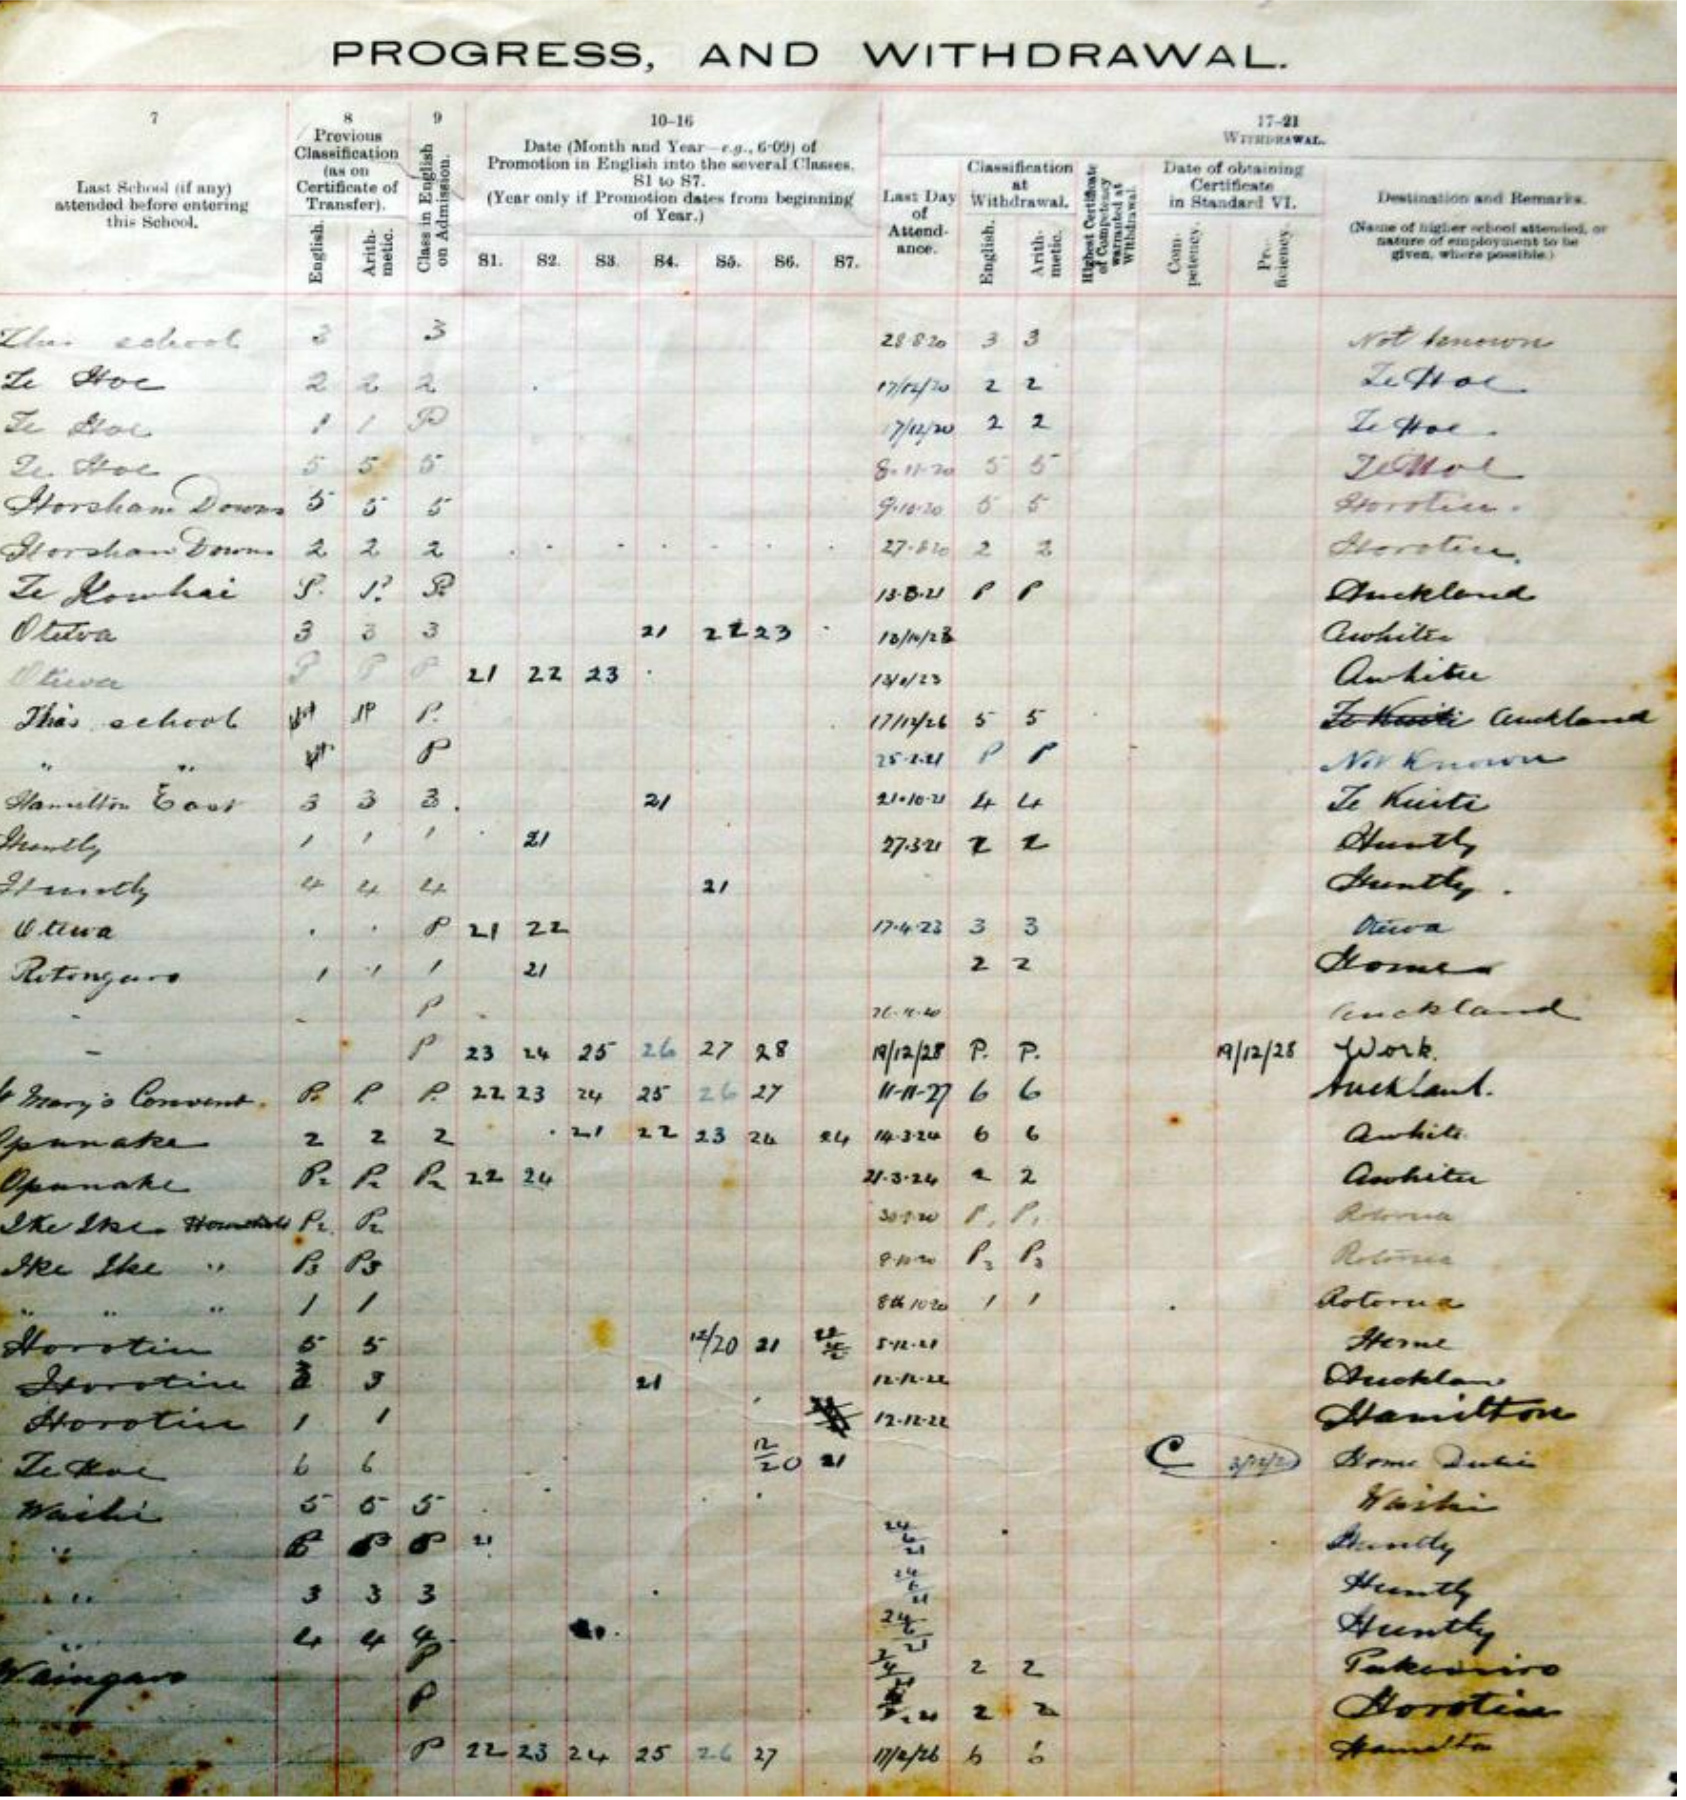 PROGRESS, AND WITHDRAWAL.
7 8 9 10-16 17-21
Last School (if any) attended before entering this School.
Previous Classification (as on Certificate of Transfer).
English. Arithmetic.
Class in English on Admission.
Date (Month and Year—e.g., 6-09) of Promotion in English into the several Classes. S1 to S7.
(Year only if Promotion dates from beginning of Year.)
S1. S2. S3. S4. S5. S6. S7.
WITHDRAWAL.
Last Day of Attendance.
Classification at Withdrawal.
English. Arithmetic.
Highest Certificate of Competency warranted at Withdrawal.
Date of obtaining Certificate in Standard VI.
Competency. Proficiency.
Destination and Remarks.
(Name of higher school attended, or nature of employment to be given, where possible.)
This school 3 3 28.8.20 3 3 Not known
Te Hoe 2 2 2 17/12/20 2 2 Te Hoe
Te Hoe 1 1 P 17/12/20 2 2 Te Hoe
Te Hoe 5 5 5 8-11-20 5 5 Te Hoe
Horsham Downs 5 5 5 9.10.20 5 5 Horotiu.
Horsham Downs 2 2 2 27.8.20 2 2 Horotiu.
Te Kowhai P. P. P. 13.8.21 P P Auckland
Otewa 3 3 3 21 22 23 Awhitu
Otewa P P P 21 22 23 Awhitu
This school P P. 17/12/26 5 5 Te Kuiti Auckland
" " P P P Not Known
Hamilton East 3 3 3. 21 21.10.21 4 4 Te Kuiti
Huntly 1 1 1 21 27.3.21 2 2 Huntly
Huntly 4 4 4 21 Huntly.
Otewa P 21 22 17.4.23 3 3 Otewa
Rotongaro 1 1 1 21 2 2 Home
P Auckland
P 23 24 25 26 27 28 19/12/28 P. P. 19/12/28 Work.
Mary's Convent. P. P. P. 22 23 24 25 26 27 11-11-27 6 6 Auckland.
Opunake 2 2 2 21 22 23 24 24 14.3.24 6 6 Awhitu
Opunake P2 P2 P2 22 24 21.3.24 2 2 Awhitu
Ike Ike P2 P2 P1 P1 Rotorua
Ike Ike " P3 P3 8.10.20 P3 P3 Rotorua
" " " 1 1 8th 10 20 1 1 Rotorua
Horotiu 5 5 12/20 21 5-12-21 Home
Horotiu 3 21 12-12-22 Auckland
Horotiu 1 1 12-12-22 Hamilton
Te Hoe 6 6 12/20 21 C Home Duties
Waihi 5 5 5 Waihi
" P P P 21 24/6/21 Huntly
" " 3 3 3 24/6/21 Huntly
" 4 4 4 24/6/21 Huntly
Waingaro P 2 2
P 2 2 Horotiu
P 22 23 24 25 26 27 6 6 Hamilton